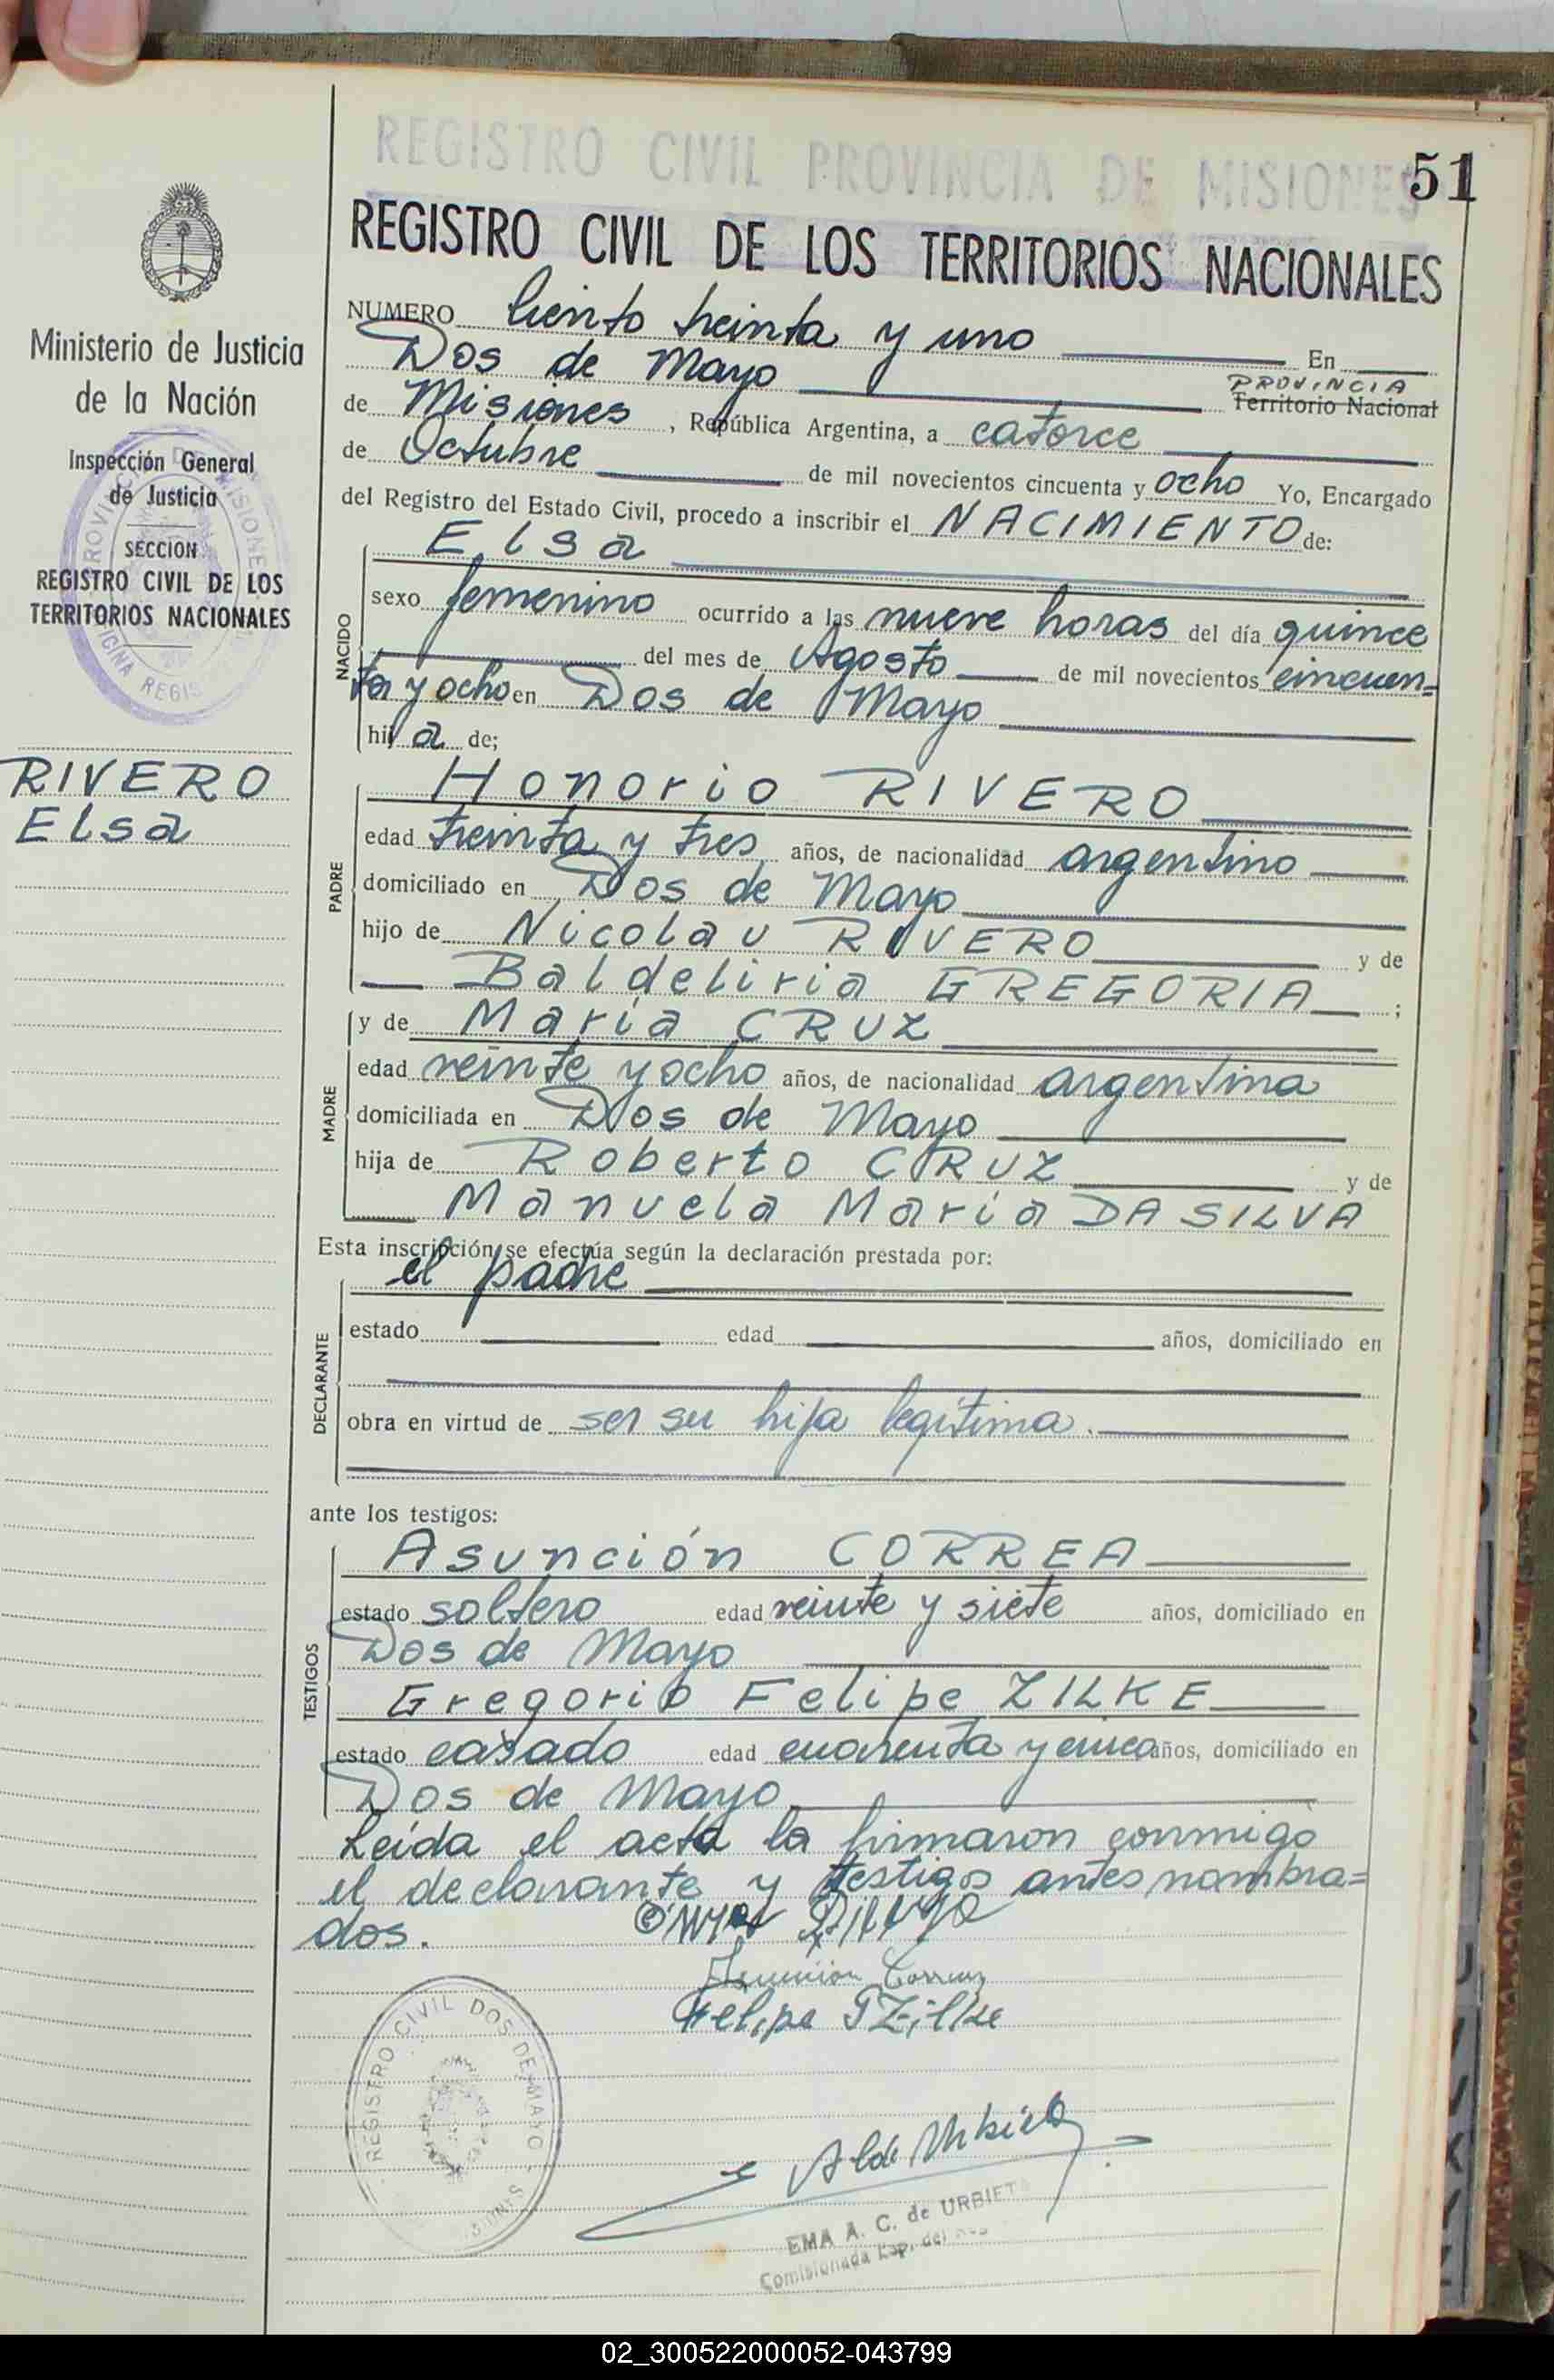 REGISTRO CIVIL PROVINCIA DE MISIONES
51
REGISTRO CIVIL DE LOS TERRITORIOS NACIONALES
Ministerio de Justicia
de la Nación
Inspección General
de Justicia
SECCION
REGISTRO CIVIL DE LOS
TERRITORIOS NACIONALES
RIVERO
Elsa
NUMERO Ciento treinta y uno En
Dos de Mayo PROVINCIA
de Misiones, República Argentina, a catorce Territorio Nacional
de Octubre de mil novecientos cincuenta y ocho Yo, Encargado
del Registro del Estado Civil, procedo a inscribir el NACIMIENTO de:
NACIDO
Elsa
sexo femenino ocurrido a las nueve horas del día quince
del mes de Agosto de mil novecientos cincuen=
ta y ocho en Dos de Mayo
hija de;
PADRE
Honorio RIVERO
edad treinta y tres años, de nacionalidad argentino
domiciliado en Dos de Mayo
hijo de Nicolau RIVERO y de
Baldeliria GREGORIA ;
MADRE
y de María CRUZ
edad veinte y ocho años, de nacionalidad argentina
domiciliada en Dos de Mayo
hija de Roberto CRUZ y de
Manuela María DA SILVA
Esta inscripción se efectúa según la declaración prestada por:
DECLARANTE
el padre
estado edad años, domiciliado en
obra en virtud de ser su hija legítima.
ante los testigos:
TESTIGOS
Asunción CORREA
estado soltero edad veinte y siete años, domiciliado en
Dos de Mayo
Gregorio Felipe ZILKE
estado casado edad cuarenta y cinco años, domiciliado en
Dos de Mayo
Leída el acta la firmaron conmigo
el declarante y testigos antes nombra=
dos.
Asunción Correa
Felipe Zilke
REGISTRO CIVIL DOS DE MAYO
EMA A. C. de URBIETA
Comisionada Esp. del
02_300522000052-043799